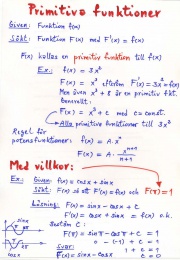 Primitiva funktioner
Given: Funktion f(x)
Sökt: Funktion F(x) med F'(x) = f(x)
F(x) kallas en primitiv funktion till f(x)
Ex.: f(x) = 3x²
F(x) = x³ eftersom F'(x) = 3x² = f(x)
Men även x³ + 8 är en primitiv fkt.
Generellt:
F(x) = x³ + C med C = const.
Alla primitiva funktioner till 3x²
Regel för
potensfunktioner: f(x) = A·xⁿ
F(x) = A · xⁿ⁺¹/n+1
Med villkor:
Ex.: Given: f(x) = cosx + sinx
Sökt: F(x) så att F'(x) = f(x) och F(π) = 1
Lösning: F(x) = sinx - cosx + C
F'(x) = cosx + sinx = f(x) o.k.
Bestäm C:
F(π) = sinπ - cosπ + C = 1
0 - (-1) + C = 1
1 + C = 1
C = 0
Svar:
F(x) = sinx - cosx
sinx
cosx